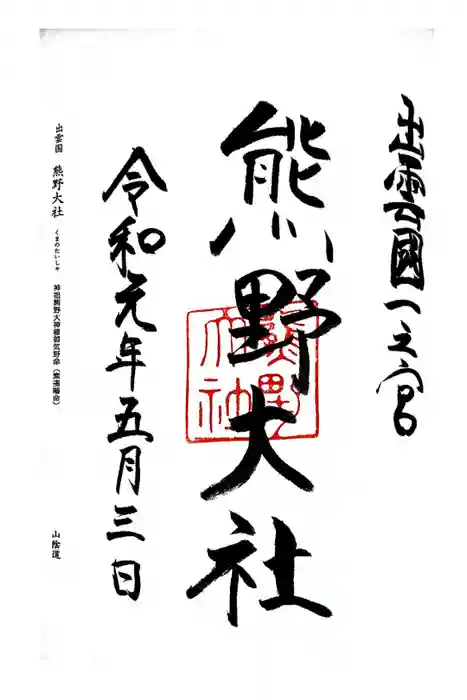 出雲國一之宮
熊野大社
熊野
大社
令和元年五月三日
出雲国 熊野大社 くまのたいしゃ 神祖熊野大神櫛御気野命（素戔嗚命） 山陰道